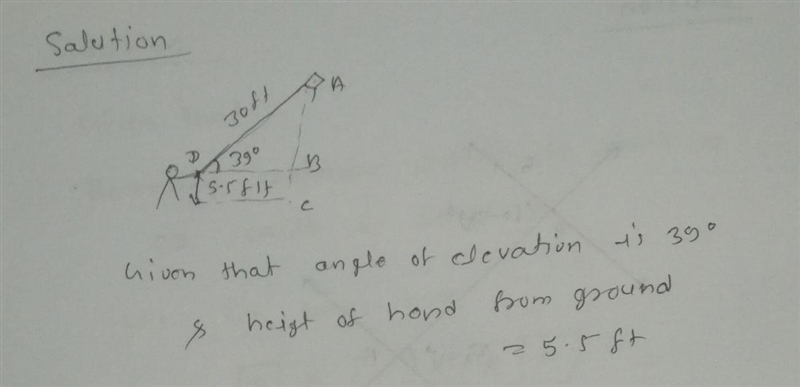 Salution
30ft
A
D
39°
B
5.5 f1t
C
Given that angle of elevation is 39°
& heigt of hand from ground
= 5.5 ft